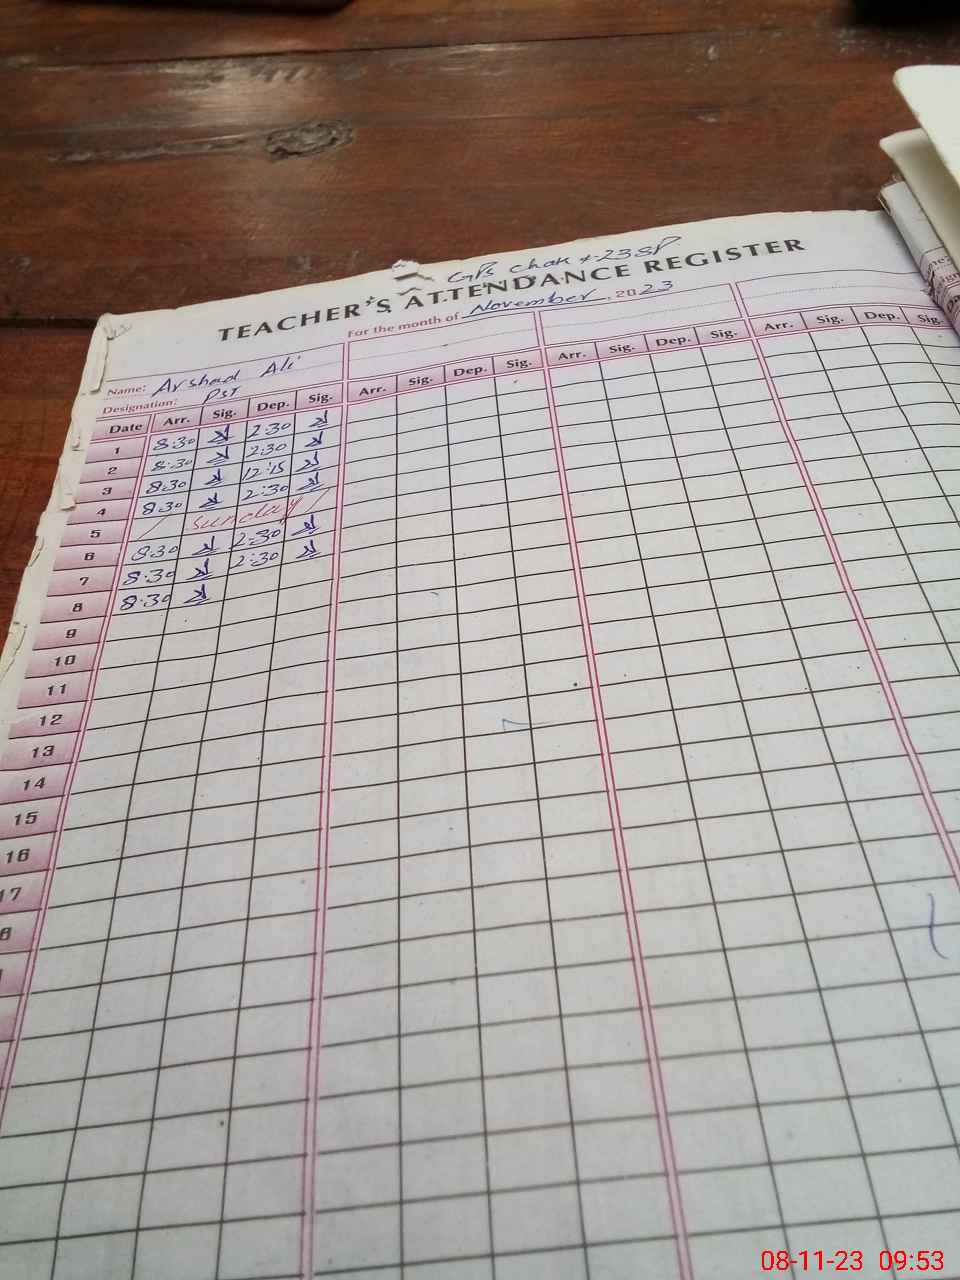 GPS chak # 23 SP
TEACHER'S ATTENDANCE REGISTER
For the month of November, 2023
Name: Arshad Ali
Designation: PST
Date Arr. Sig. Dep. Sig. Arr. Sig. Dep. Sig. Arr. Sig. Dep. Sig. Arr. Sig. Dep. Sig.
1 8:30 2:30
2 8:30 2:30
3 8:30 12:15
4 8:30 2:30
5 Sunday
6 8:30 2:30
7 8:30 2:30
8 8:30
9
10
11
12
13
14
15
16
17
8
08-11-23 09:53